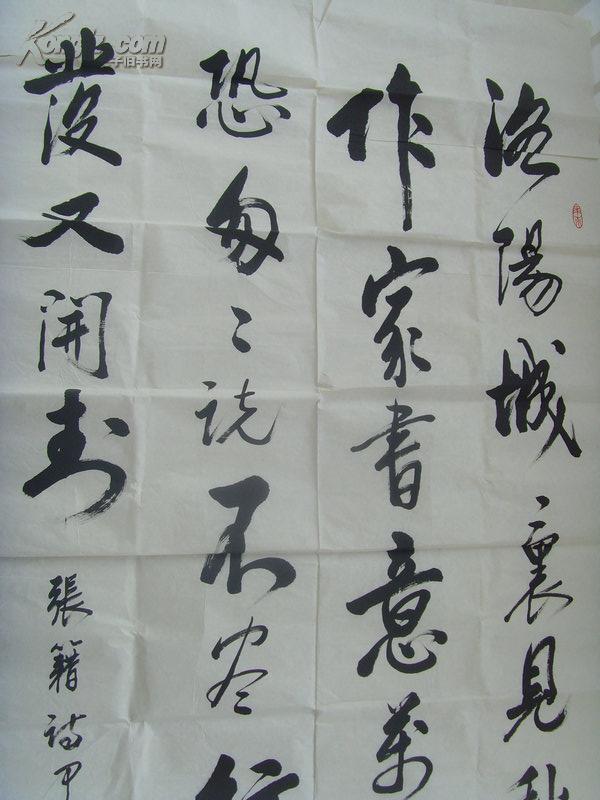 洛陽城裏見秋
作家書意萬
恐匆〻说不尽行
發又開封
張籍詩甲
Kongfz.com
孔子旧书网